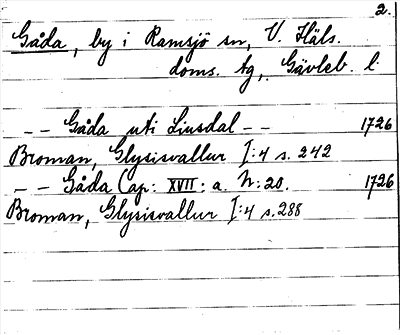 2.
Gåda, by i Ramsjö sn, V. Häls.
doms. tg, Gävleb. l.
-- Gåda uti Liusdal -- 1726
Broman, Glysisvallur I:4 s. 242
-- Gåda Cap: XVII: a. N: 20. 1726
Broman, Glysisvallur I:4 s. 288